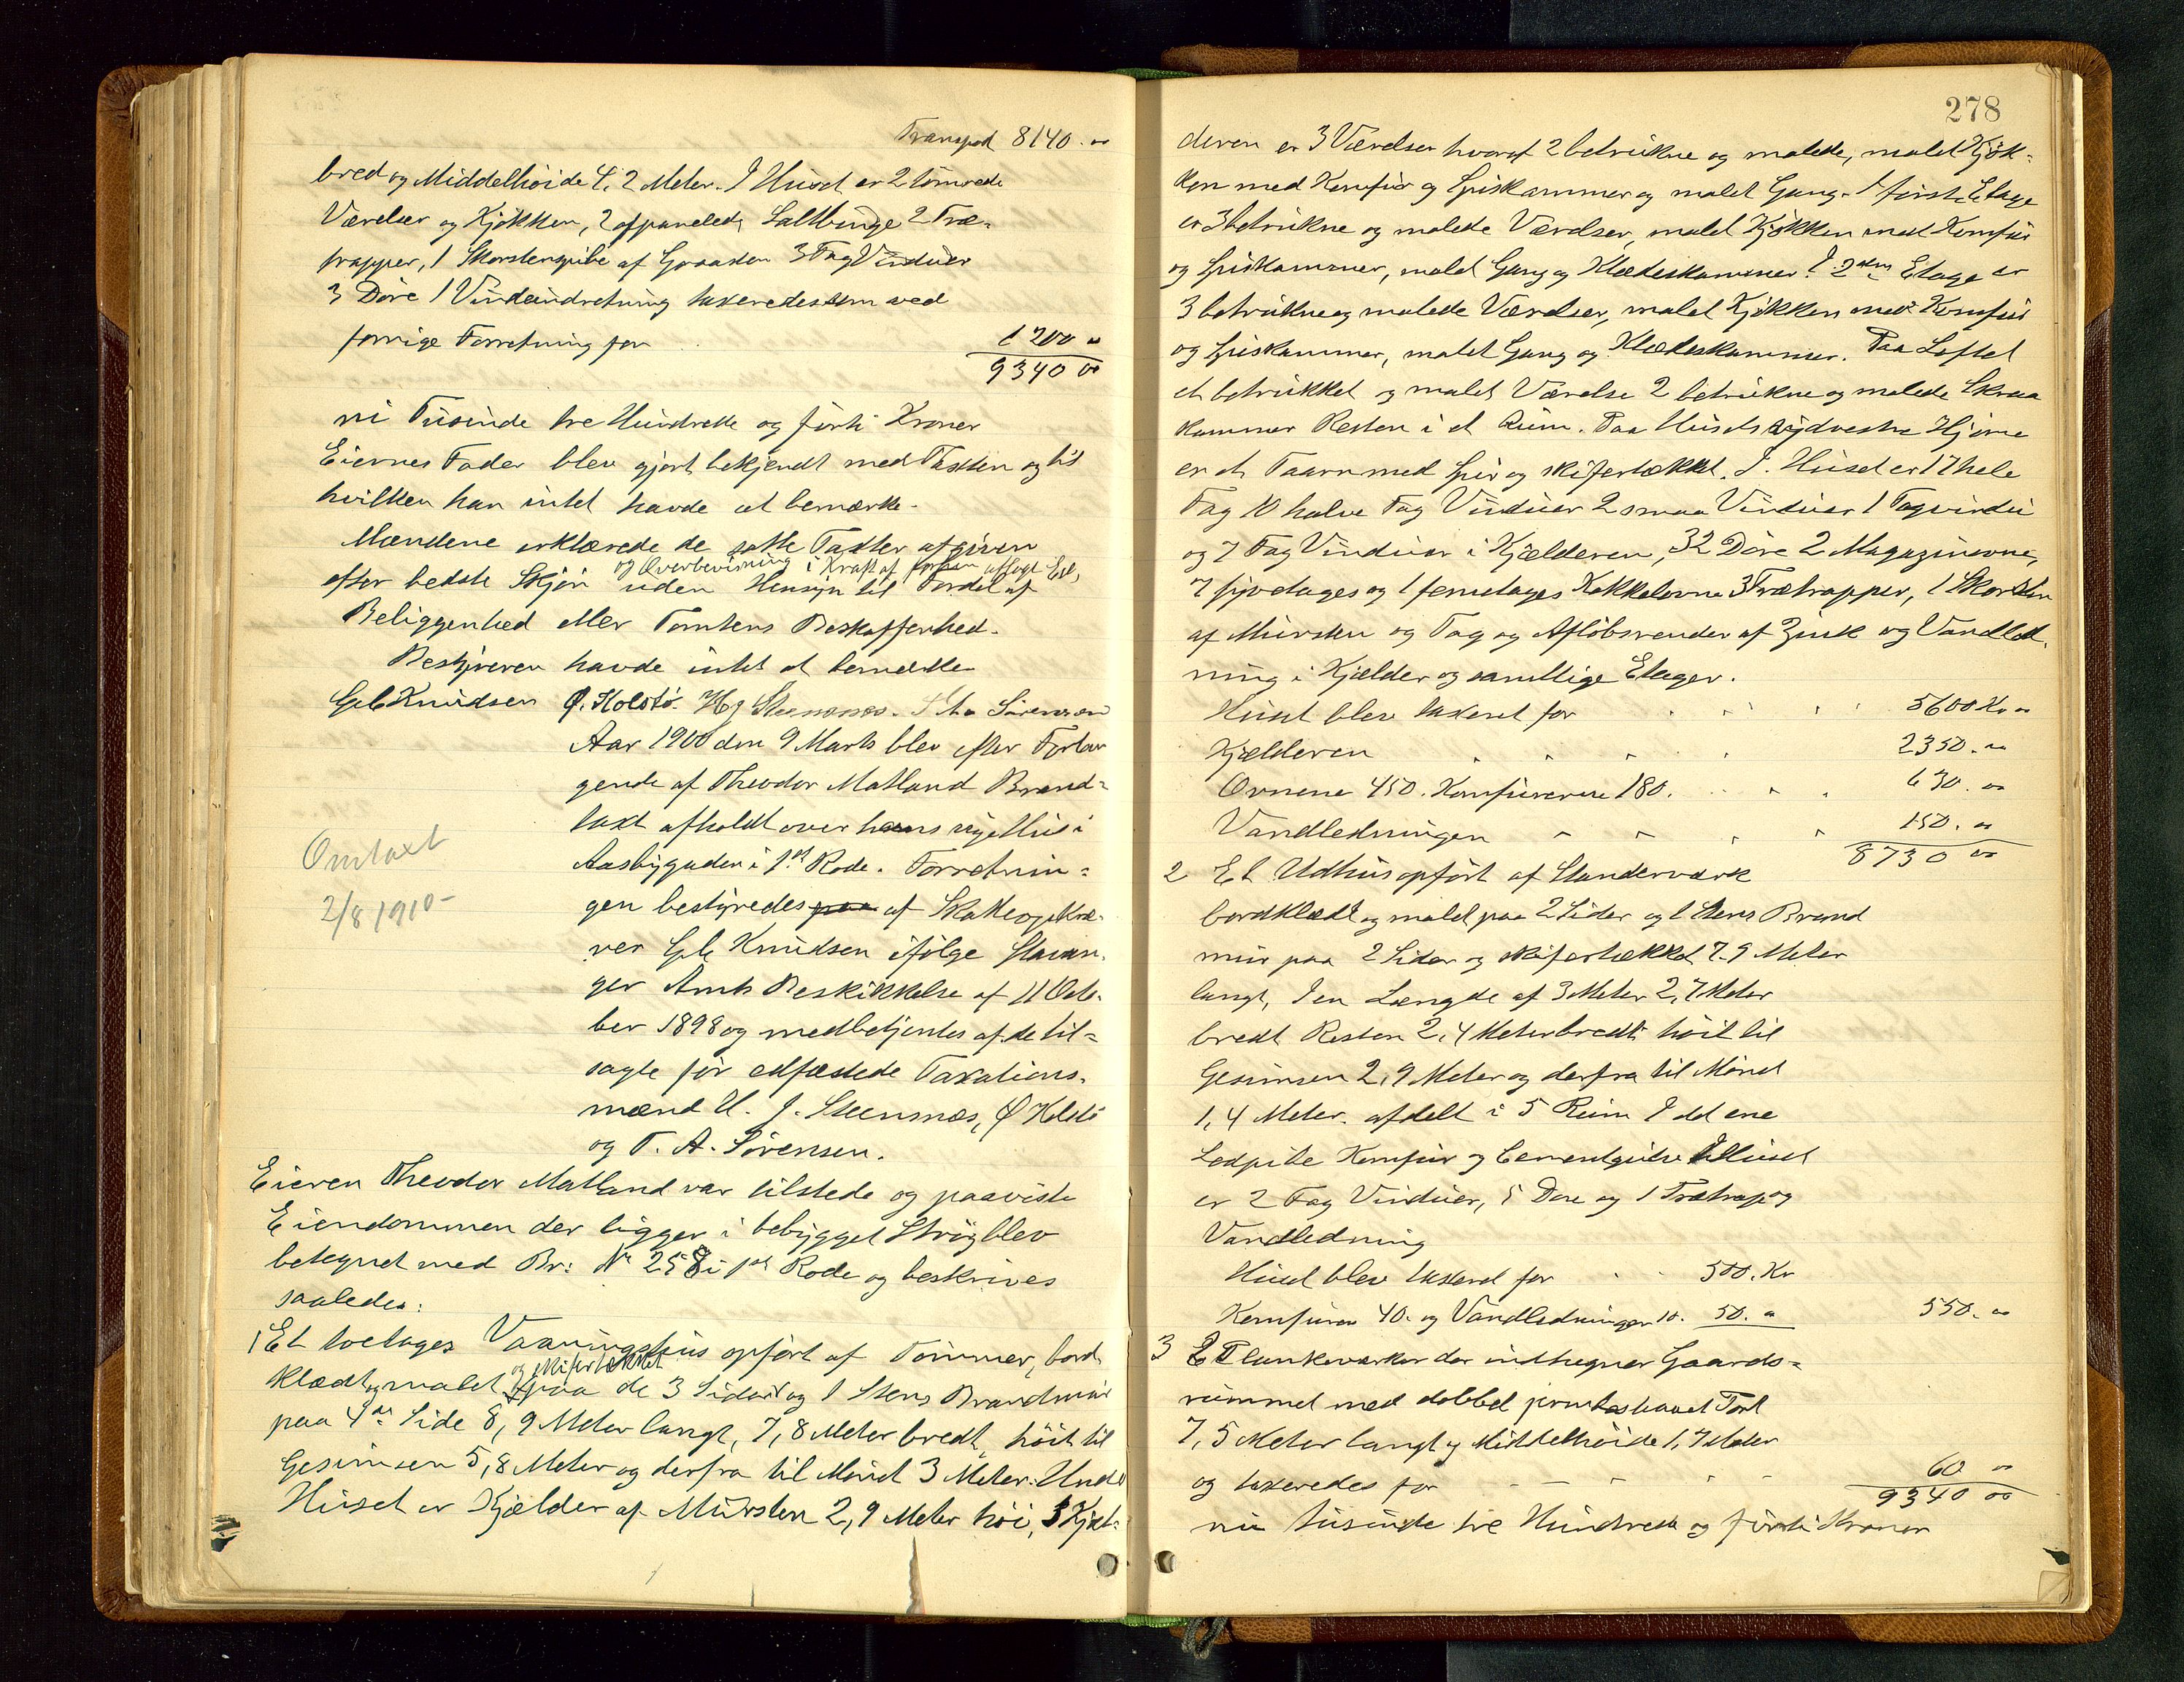 Transport 8140. "
bred og Middelhöide 4,2 Meter. I Huset er 2 tömrede
Værelser og Kjökken, 2 afpanelede Saltbinge 2 Træ-
trapper, 1 Skorstenspibe af Graasten 3 Fag Vinduer
3 Döre 1 Vindeindretning taxeredes som ved
forrige Forretning for 1200 "
9340 00
ni Tusinde tre Hundrede og förti Kroner
Eiernes Fader blev gjort bekjendt med Taxten og til
hvilken han intet havde at bemærke.
Mændene erklærede de satte Taxter afgiven
og Overbevisning i Kraft af forhen aflagt Eed,
efter bedste Skjön uden Hensyn til Fordel af
Beliggenhed eller Tomtens Beskaffenhed.
Bestyreren havde intet at bemærke
Gab Knudsen O. Kolstö. H J Steensnæs. T. A. Sörensen
Aar 1900 den 9 Marts blev efter Forlan
gende af Theodor Matland Brand-
taxt afholdt over hans nye Hus i
Omtaxt
2/8 1910-
Aasbygaden i 1ste Rode. Forretnin-
gen bestyredes paa af Skatteopkræ-
ver Gab Knudsen ifölge Stavan-
ger Amts Beskikkelse af 11 Octo-
ber 1898 og medbetjentes af de til-
sagte för edfæstede Taxations-
mænd H. J. Steensnæs, O Kolstö
og T. A. Sörensen.
Eieren Theodor Matland var tilstede og paaviste
Eiendommen der ligger i bebygget Strög blev
betegnet med Br: No 258 i 1ste Rode og beskrives
saaledes:
1 Et toetages Vaaningshus opfört af Tömmer, bord
og skifertækket
klædt og malet paa de 3 Sider og 1 Stens Brandmur
paa 4de Side 8,9 Meter langt, 7,8 Meter bredt, höit til
Gesimsen 5,8 Meter og derfra til Mönet 3 Meter. Under
Huset er Kjælder af Mursten 2,9 Meter höi, I Kjæl-
278
deren er 3 Værelser hvoraf 2 betrukne og malede, malet Kjök-
ken med Komfur og Spiskammer og malet Gang. I förste Etage
er 3 betrukne og malede Værelser, malet Kjökken med Komfur
og Spiskammer, malet Gang og Klædeskammer. I 2den Etage er
3 betrukne og malede Værelser, malet Kjökken med Komfur
og Spiskammer, malet Gang og Klædeskammer. Paa Loftet
et betrukket og malet Værelse 2 betrukne og malede Skraa
kammer Resten i et Rum. Paa Husets sydvestre Hjörne
er et Taarn med Spir og skifertækket. I Huset er 17 hele
Fag 10 halve Fag Vinduer 2 smaa Vinduer 1 Tagvindu
og 7 Fag Vinduer i Kjælderen, 32 Döre 2 Magazinovne,
7 fireetages og 1 femetages Kakkelovne 3 Trætrapper, 1 Skorsten
af Mursten og Tag og Aflöbsrender af Zink og Vandled-
ning i Kjælder og samtlige Etager.
Huset blev taxeret for 5600 Kr "
Kjælderen 2350. "
Ovnene 450. Komfurerne 180. 630. "
Vandledningen 150. "
8730 00
2 Et Udhus opfört af Standerværk
bordklædt og malet paa 2 Sider og 1 Stens Brand
mur paa 2 Sider og skifertækket 7.9 Meter
langt, I en Længde af 3 Meter 2,7 Meter
bredt Resten 2,4 Meter bredt höit til
Gesimsen 2,9 Meter og derfra til Mönet
1,4 Meter. afdelt i 5 Rum I det ene
Komfur og Cementgulv I Huset
er 2 Fag Vinduer, 5 Döre og 1 Trætrap og
Vandledning
Huset blev taxeret for 500. Kr
Komfuren 40. og Vandledningen 10. 50. " 550. "
3 Et Plankeværker der indhegner Gaards-
rummet med dobbel Port
7,5 Meter langt og Middelhöide 1,7 Meter
og taxeredes for 60 "
9340 00
ni tusinde tre Hundrede og förti Kroner